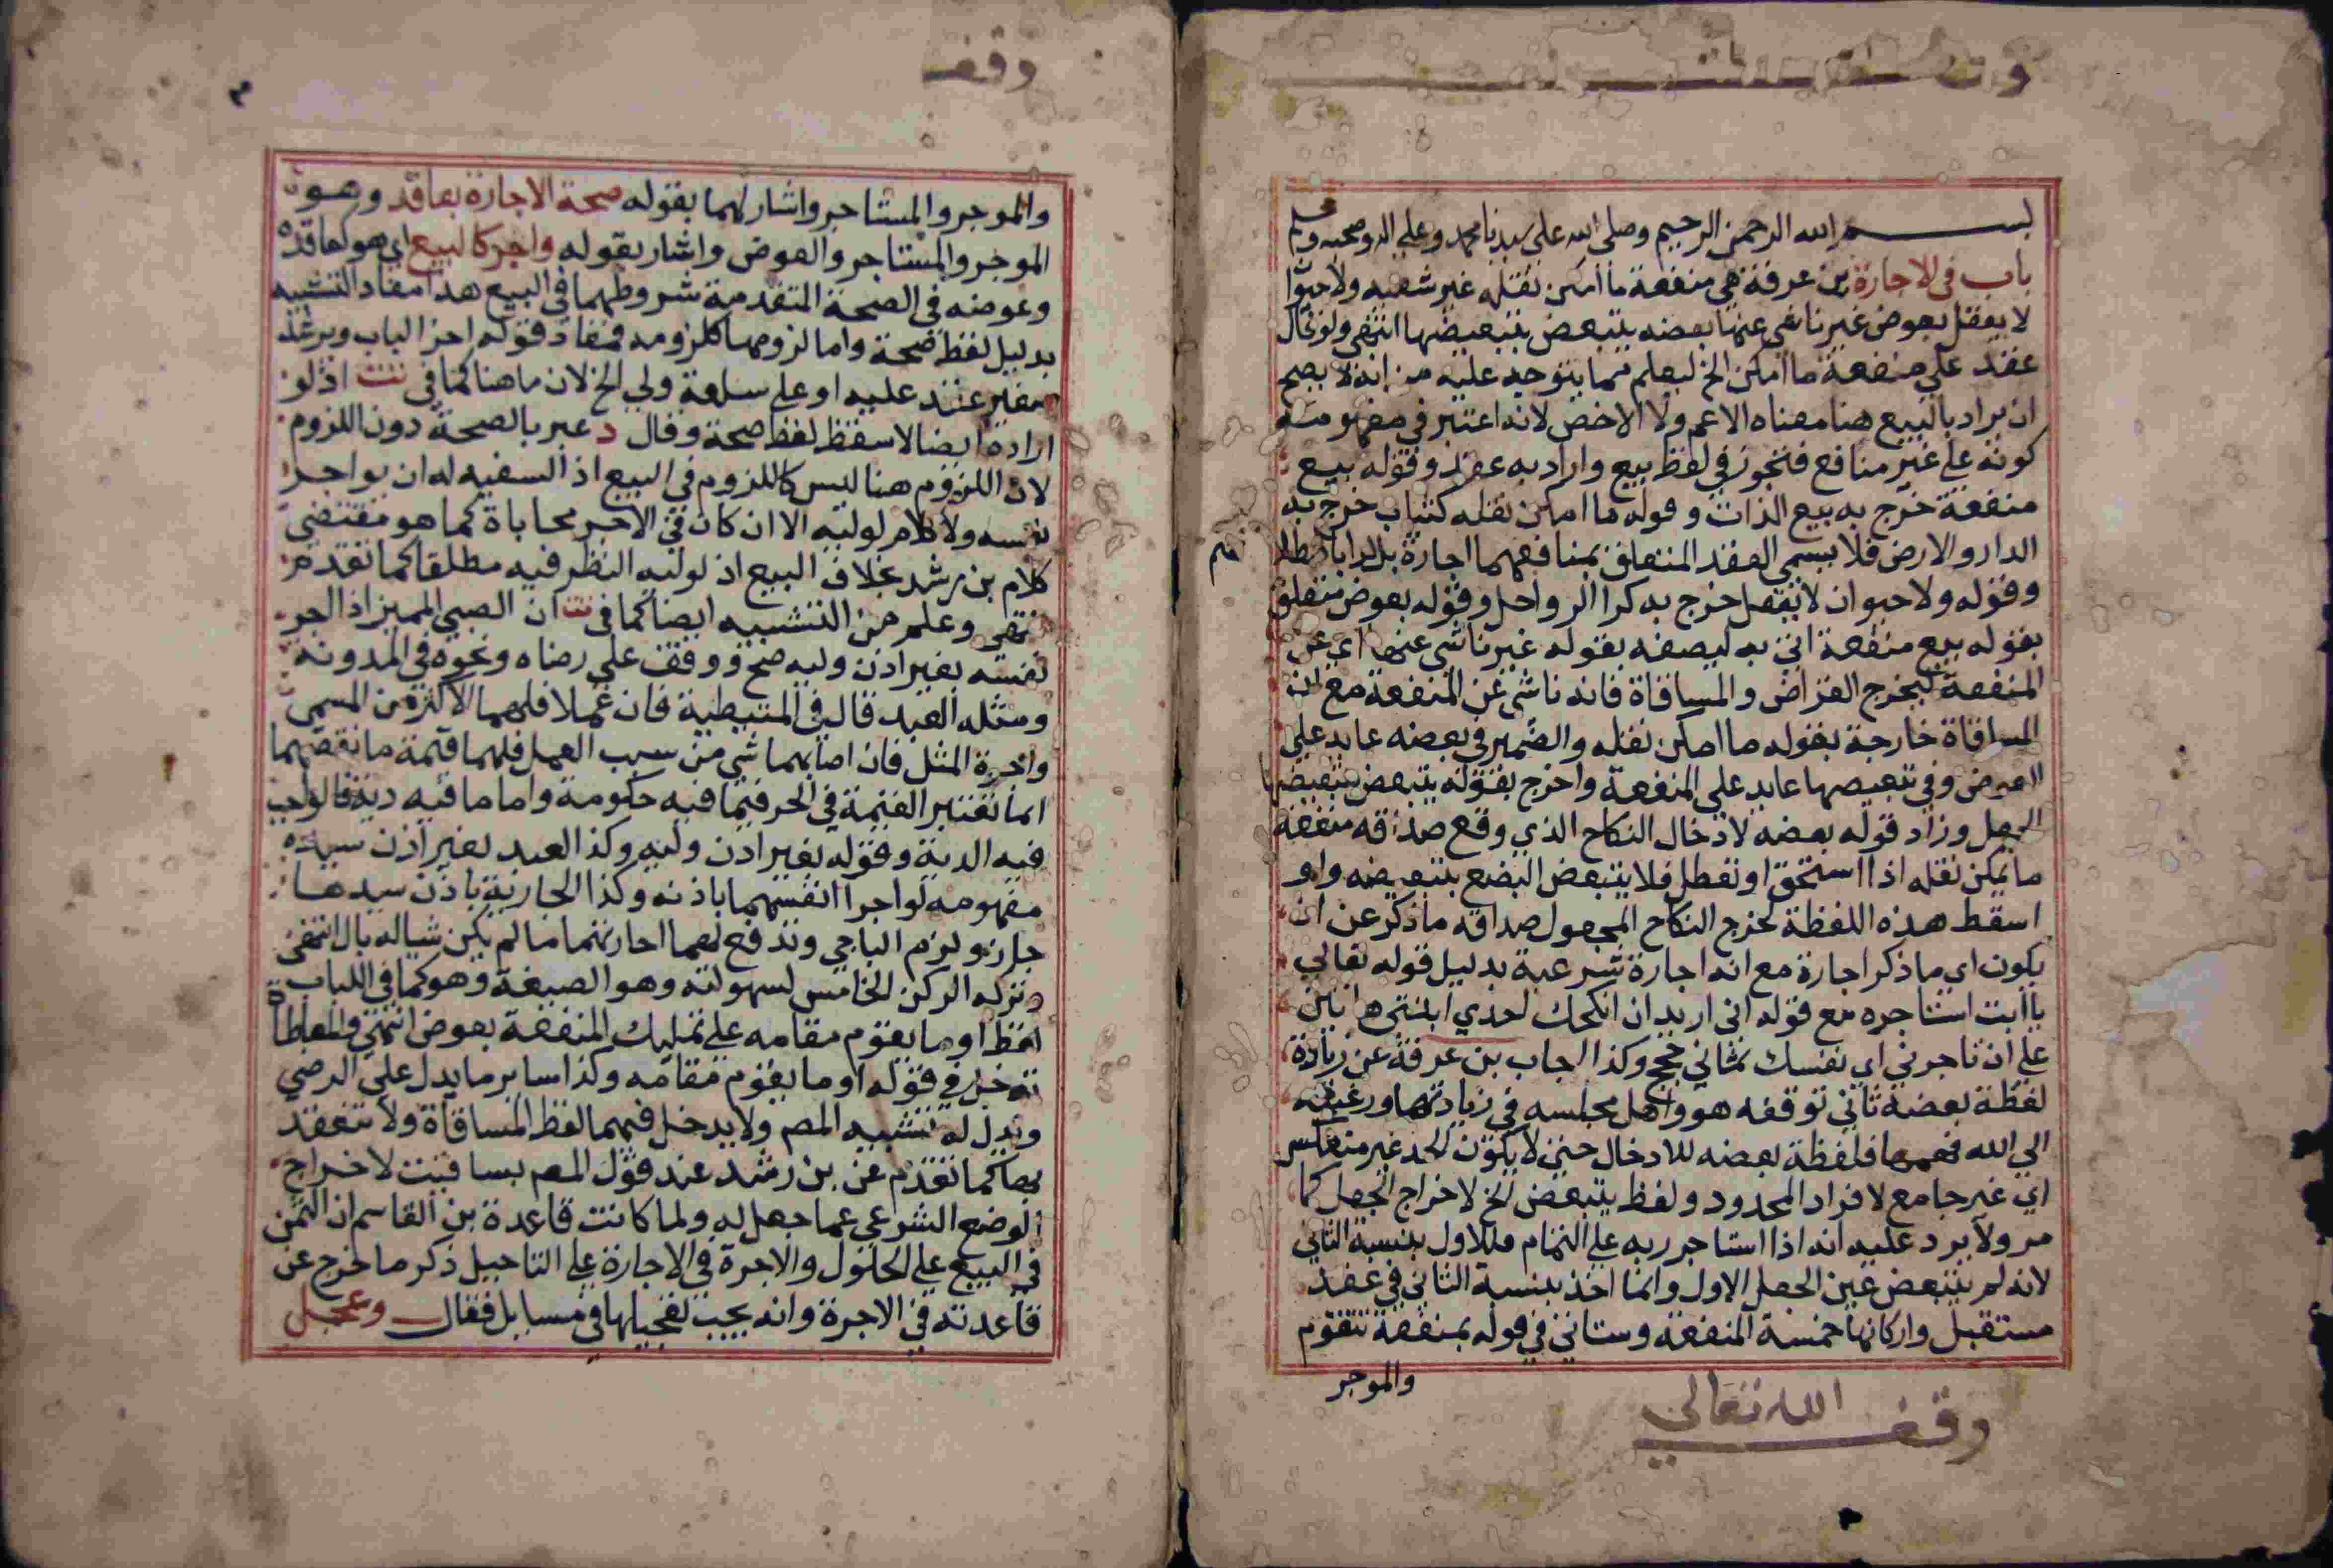 وقف
بسم الله الرحمن الرحيم وصلى الله على سيدنا محمد وعلى اله وصحبه وسلم
باب في الاجارة بن عرفة هي منفعة ما امكن نقله غير سفينة ولا حيوان
لا يعقل بعوض غير ناشئ عنها بعضه يتبعض بتبعيضها انتهى ولو قال
عقد على منفعة ما امكن الخ ليعلم مما يتوجه عليه من انه لا يصح
ان يراد بالبيع هنا معناه الاعم ولا الاخص لانه اعتبر في مفهومه
كونه على غير منافع فتجوز في لفظ بيع واراد به عقد وقوله بيع
منفعة خرج به بيع الذات وقوله ما امكن نقله كتباب خرج به
الدار والارض فلا يسمى العقد المتعلق بمنافعهما اجارة بل كرا
وقوله ولا حيوان لا يعقل خرج به كرا الرواحل وقوله بعوض متعلق
بقوله بيع منفعة اتى به ليصفه بقوله غير ناشى عنها اي عن
المنفعة ليخرج القراض والمساقاة فانه ناشى عن المنفعة مع ان
المساقاة خارجة بقوله ما امكن نقله والضمير في بعضه عايد على
العوض وفي تبعيضها عايد على المنفعة واخرج بقوله يتبعض بتبعيضها
الجعل وزاد قوله بعضه لادخال النكاح الذي وقع صداقه منفعة
ما يمكن نقله اذا استحق او تعطل فلا يتبعض البضع بتبعيضه ولو
اسقط هذه اللفظة لخرج النكاح المجعول صداقه ما ذكر عن ان
يكون اي ما ذكر اجارة مع انه اجارة شرعية بدليل قوله تعالى
ياابت استاجره مع قوله اني اريد ان انكحك احدى ابنتي هاتين
على ان تاجرني اي نفسك ثماني حجج وكذا اجاب بن عرفة عن زيادة
لفظة بعضه ثاني توقفه هو واهل مجلسه في زيادتها ورغبته
الى الله ففهمها فلفظة بعضه للادخال حتى لا يكون الحد غير منعكس
اي غير جامع لافراد المحدود ولفظ يتبعض الخ لاخراج الجعل كما
مر ولا يرد عليه انه اذا استاجر ربه على التمام فللاول بنسبة الثاني
لانه لم يتبعض عين الجعل الاول وانما اخذ بنسبة الثاني في عقد
مستقبل واركانها خمسة المنفعة وستاتي في قوله بمنفعة تتقوم
والموجر
وقف الله تعالى
وقف
والموجر والمستاجر واشار لهما بقوله صحة الاجارة بعاقد وهو
الموجر والمستاجر والعوض واشار بقوله واجر كالبيع اي هو كعاقده
وعوضه في الصحة المتقدمة شروطهما في البيع هذا مفاد التشبيه
بدليل لفظ صحة واما لزومها كلزومه فمفاد قوله اخر الباب
اذ لو
اراده ايضا لاسقط لفظ صحة وقال د عبر بالصحة دون اللزوم
لان اللزوم هنا ليس كاللزوم في البيع اذ السفيه له ان يواجر
نفسه ولا كلام لوليه الا ان كان في الاجر محاباة كما هو مقتضى
كلام بن رشد بخلاف البيع اذ لوليه النظر فيه مطلقا كما تقدم
انتهى وعلم من التشبيه ايضا كما في تت ان الصبي المميز اذا اجر
نفسه بغير اذن وليه صح ووقف على رضاه ونحوه في المدونة
ومثله العبد قال في المتيطية فان عملا فلهما الاكثر من المسمى
واجرة المثل فان اصابهما شي من سبب العمل فلهما قيمة ما نقصهما
انما تعتبر القيمة في الحر فيما فيه حكومة واما ما فيه دية فالواجب
فيه الدية وقوله بغير اذن وليه وكذا العبد بغير اذن سيده
مفهومه لو اجرا انفسهما باذنه وكذا الجارية باذن سيدها
جاز ولزم الباجي وتدفع لهما اجارتهما ما لم يكن شيا له بال انتهى
وترك الركن الخامس لسهولته وهو الصيغة وهو كما في اللباب
لفظ او ما يقوم مقامه على تمليك المنفعة بعوض انتهى والمعاطاة
تدخل في قوله او ما يقوم مقامه وكذا ساير ما يدل على الرضى
ويدل له تشبيه المص ولا يدخل فيهما لفظ المساقاة ولا تنعقد
بها كما تقدم عن بن رشد عند قول المص بساقيت لاخراج
الوضع الشرعي عما جعل له ولما كانت قاعدة بن القاسم ان الثمن
في البيع على الحلول والاجرة في الاجارة على التاجيل ذكر ما خرج عن
قاعدته في الاجرة وانه يجب تعجيلها في مسايل فقال وعجل